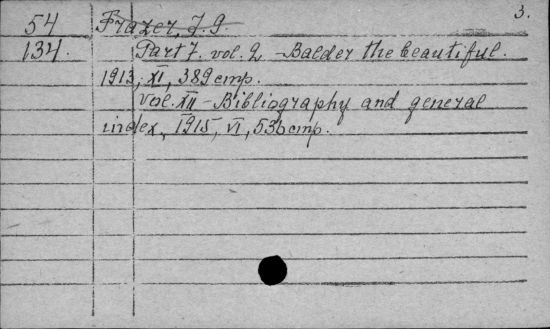 3.
54 Frazer, J. G.
134. Part 7. vol. 2 - Balder the beautiful.
1913, XI, 389 стр.
Vol. XII - Bibliography and general
index, 1915, VI, 536 стр.